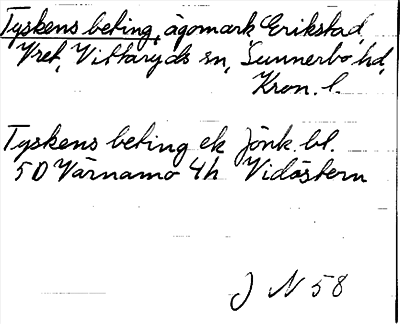 Tyskens beting, ägomark Erikstad,
Vret, Vittaryds sn, Sunnerbo hd,
Kron. l.
Tyskens beting ek Jönk. bl.
5D Värnamo 4h Vidöstern
J N 58